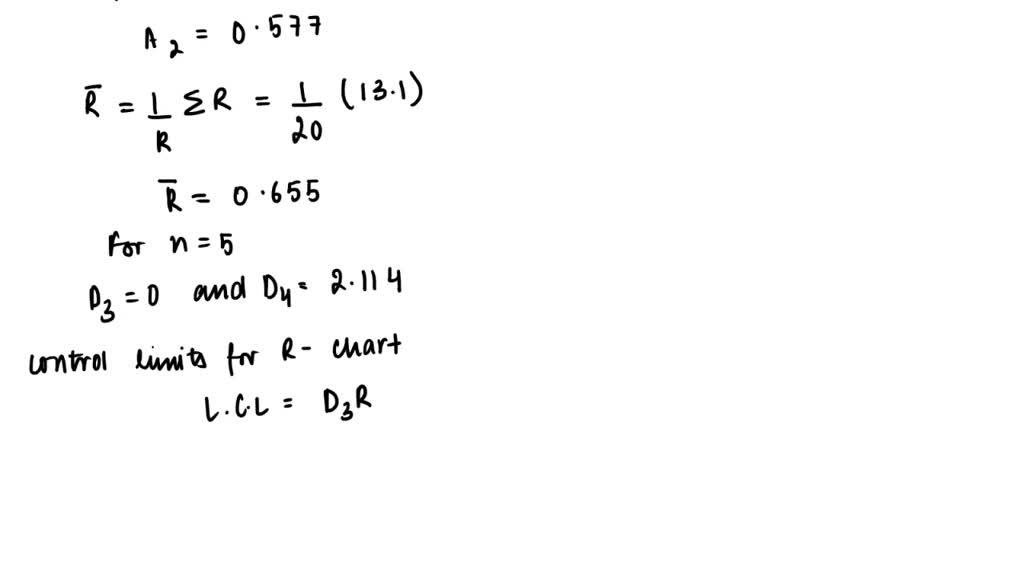 A₂ = 0.577
R̅ = 1/R ΣR = 1/20 (13.1)
R̅ = 0.655
for n = 5
D₃ = 0 and D₄ = 2.114
control limits for R- chart
L.C.L = D₃R